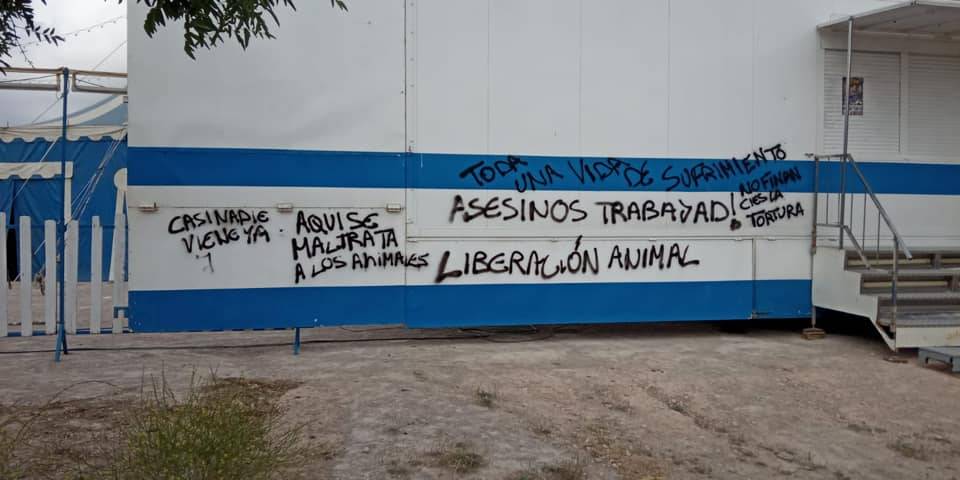 CASI NADIE
VIENE YA
AQUI SE
MALTRATA
A LOS ANIMALES
TODA
UNA VIDA DE SUFRIMIENTO
ASESINOS TRABAJAD!
NO FINAN
CIES LA
TORTURA
LIBERACIÓN ANIMAL